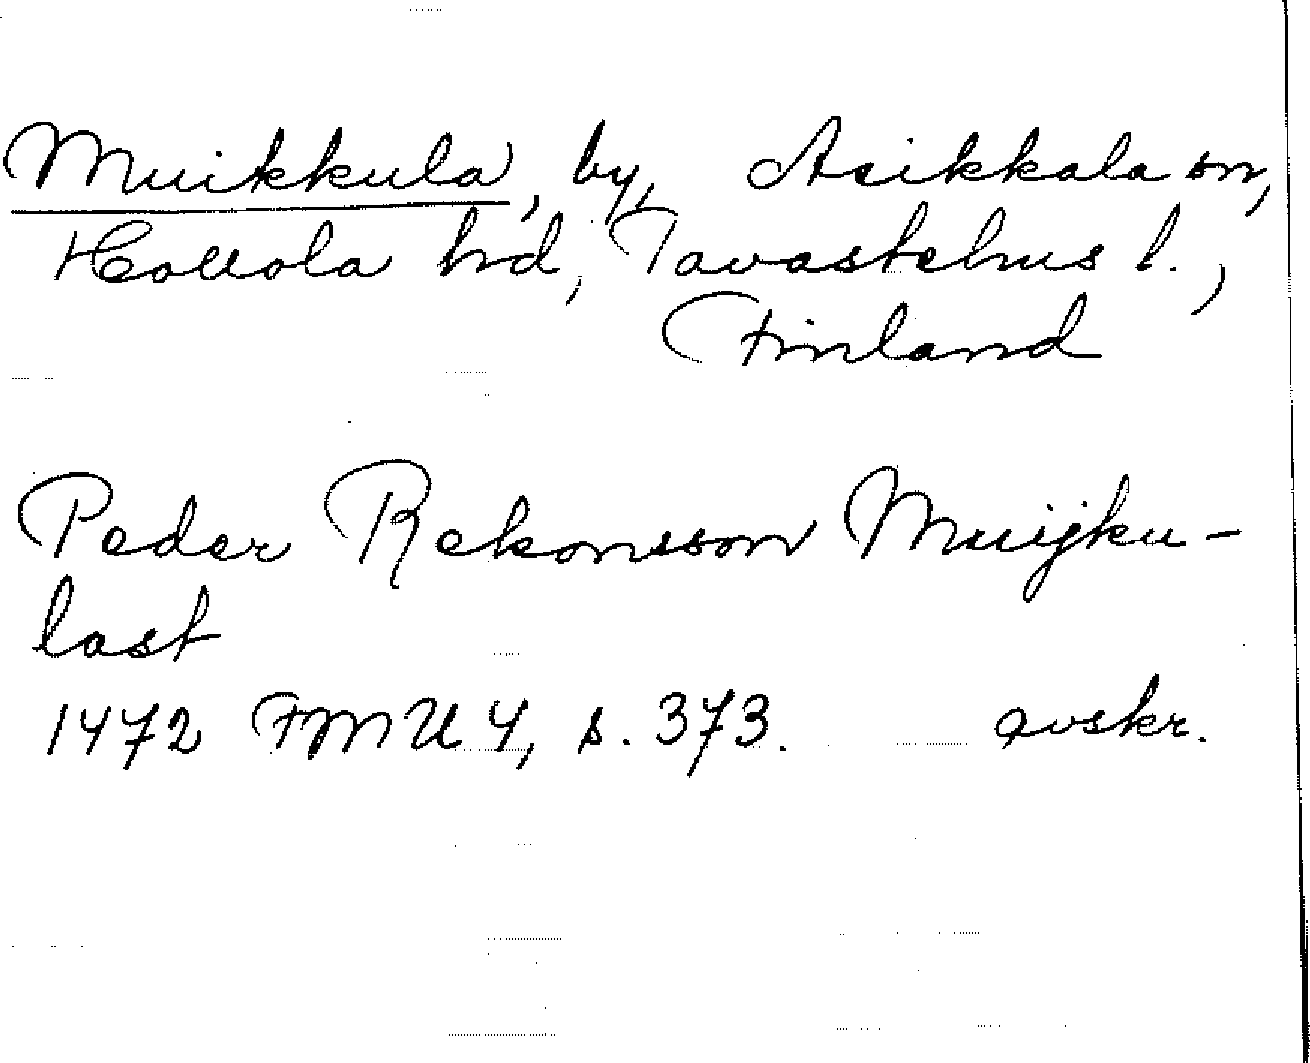 Muikkula, by, Asikkala sn,
Hollola hrd, Tavastehus l.,
Finland
Peder Rekonsson Muijku-
last
1472 FMU 4, s. 373. avskr.